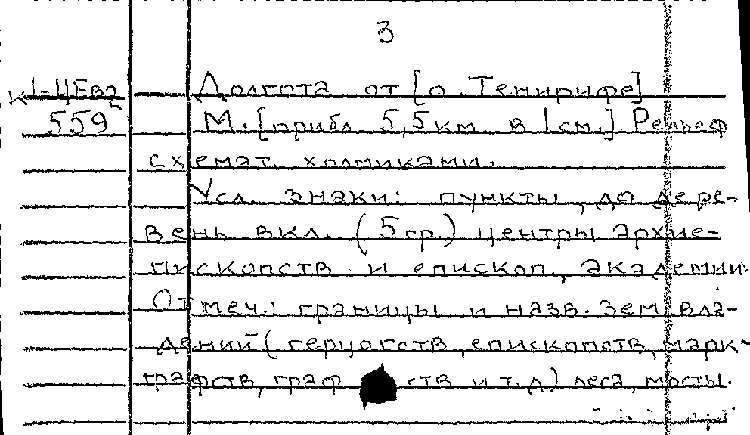 3
К1-ЦЕв2 Долгота от [о. Тенирифе]
559 М. [прибл. 5,5км в 1см.] Рельеф
схемат. холмиками.
Усл. знаки: пункты, до дере-
вень вкл. (5гр.) центры архие-
пископств и епископ., академии.
Отмеч.: границы и назв. зем. вла-
дений (герцогств, епископств, марк-
графств, граф ств и т.д.) леса, мосты.